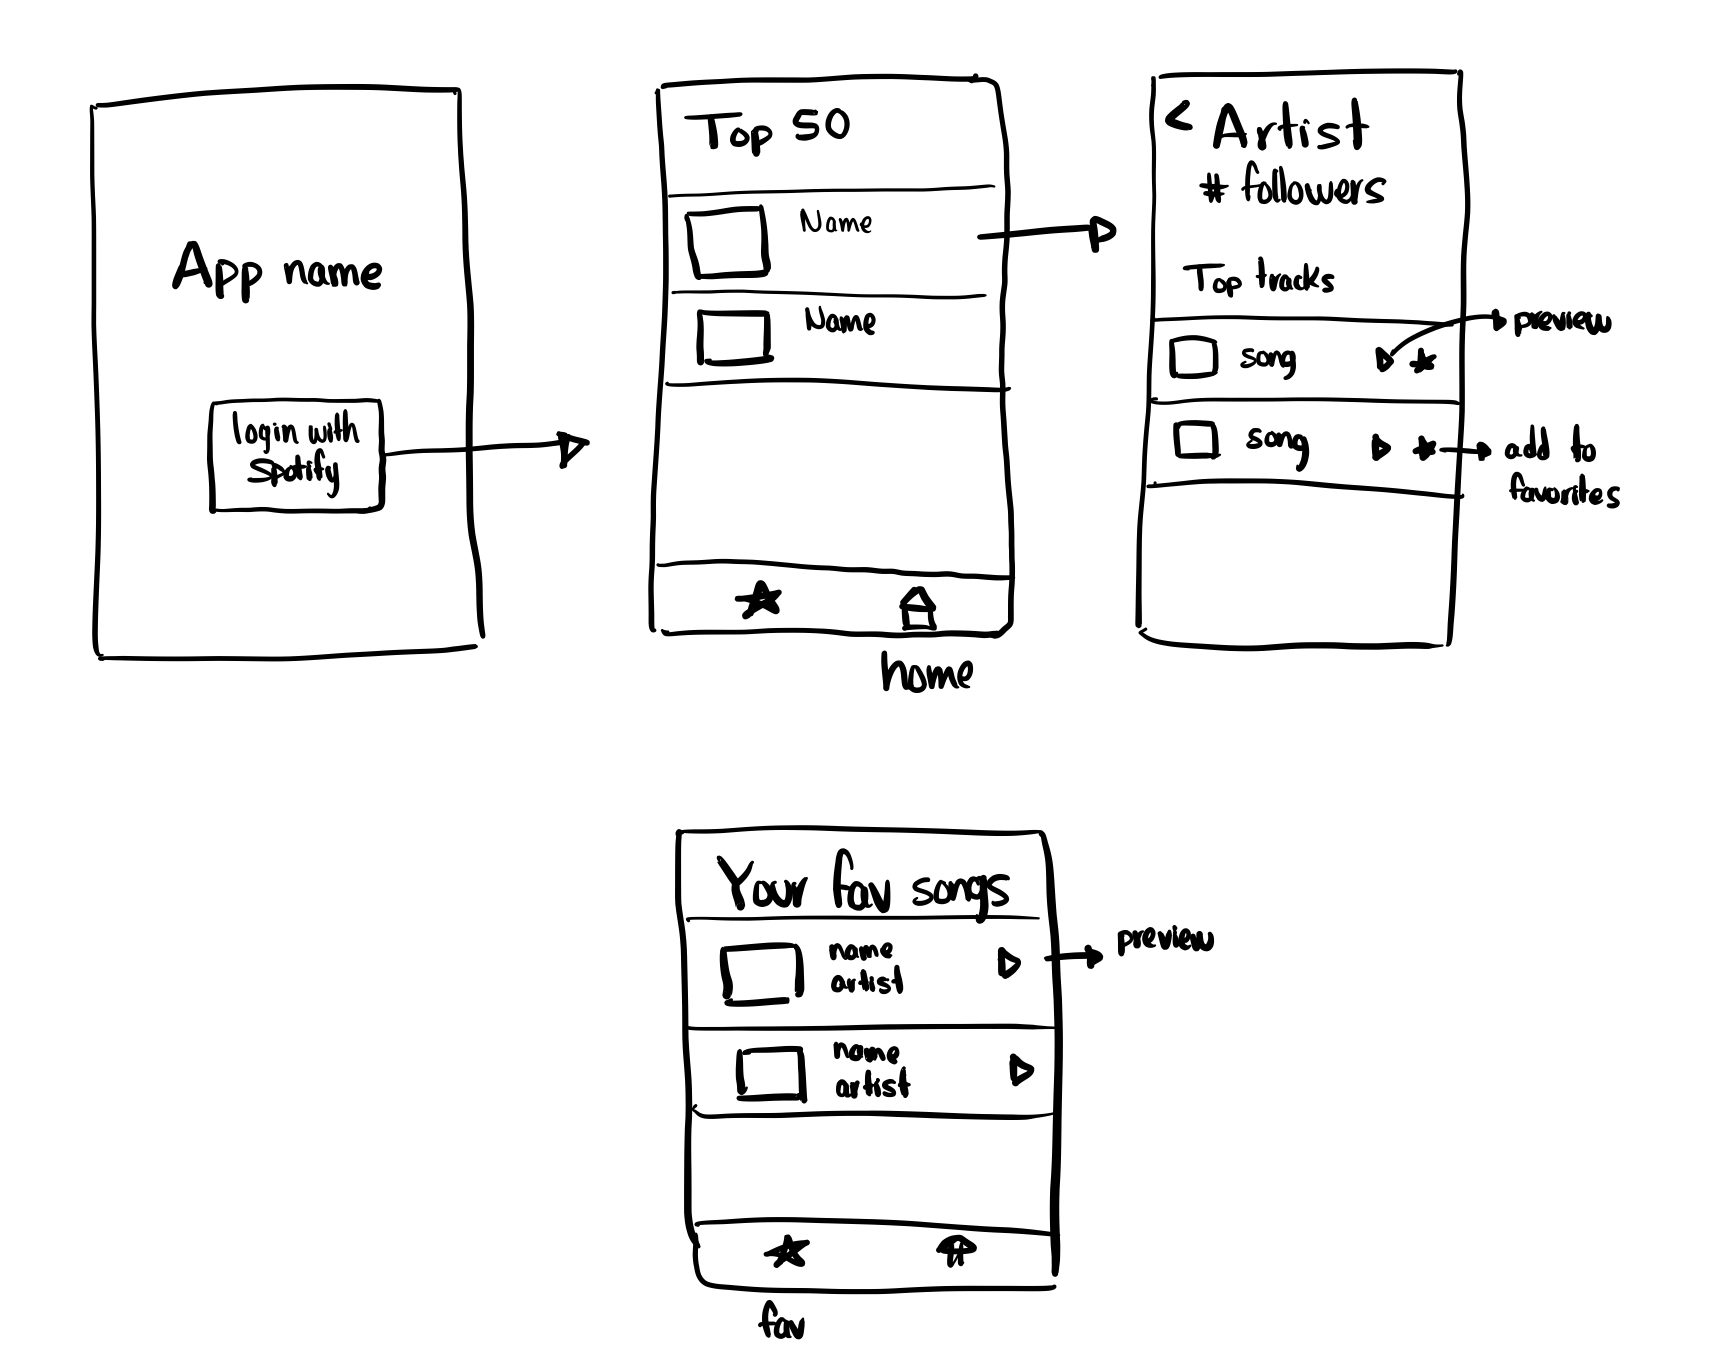 App name
login with
Spotify
Top 50
Name
Name
home
< Artist
# followers
Top tracks
song
preview
song
add to
favorites
Your fav songs
name
artist
preview
name
artist
fav